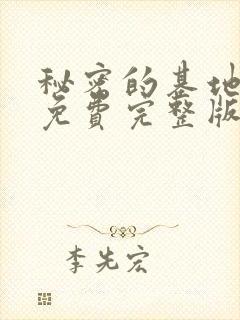 秘密的基地
免费完整版
李先宏